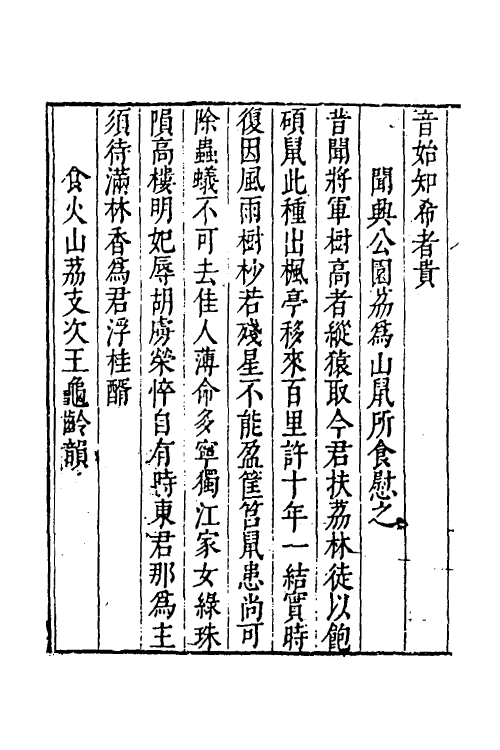 音始知希者貴
聞興公園荔為山鼠所食慰之
昔聞將軍樹高者縱猿取今君扶荔林徒以飽
碩鼠此種出楓亭移來百里許十年一結實時
復因風雨樹杪若殘星不能盈筐筥鼠患尚可
除蟲蟻不可去佳人薄命多寧獨江家女綠珠
隕高樓明妃辱胡虜榮悴自有時東君那為主
須待滿林香為君浮桂醑
食火山荔支次王龜齡韻